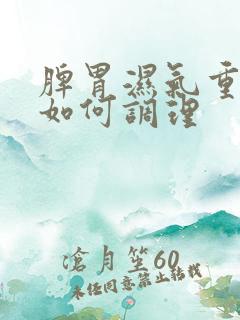 脾胃濕氣重
如何調理
滄月笙60
未經同意禁止轉載